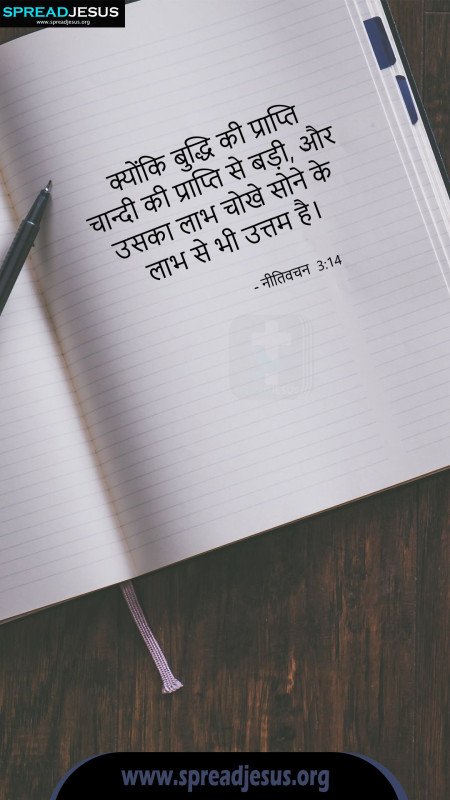 SPREADJESUS
www.spreadjesus.org
क्योंकि बुद्धि की प्राप्ति
चान्दी की प्राप्ति से बड़ी, और
उसका लाभ चोखे सोने के
लाभ से भी उत्तम है।
- नीतिवचन 3:14
www.spreadjesus.org